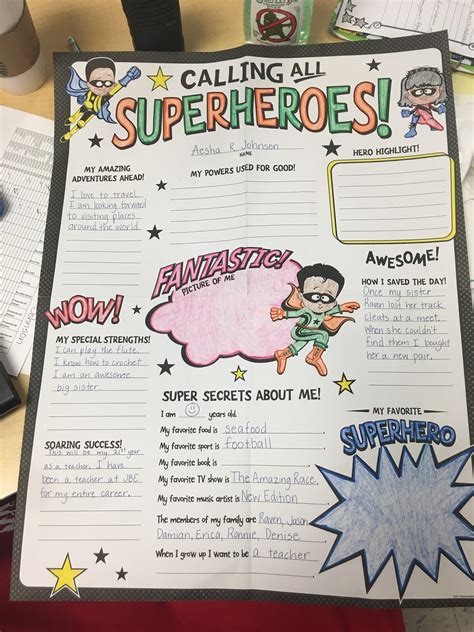 CALLING ALL
SUPERHEROES!
Aesha R. Johnson
NAME
MY AMAZING
ADVENTURES AHEAD!
I love to travel.
I am looking forward
to visiting places
around the world.
MY POWERS USED FOR GOOD!
HERO HIGHLIGHT!
FANTASTIC!
PICTURE OF ME
AWESOME!
HOW I SAVED THE DAY!
Once my sister
Raven lost her track
cleats at a meet.
When she couldn't
find them I bought
her a new pair.
WOW!
MY SPECIAL STRENGTHS!
I can play the flute.
I know how to crochet
I am an awesome
big sister.
SUPER SECRETS ABOUT ME!
I am years old.
My favorite food is seafood
My favorite sport is football
My favorite book is
My favorite TV show is The Amazing Race.
My favorite music artist is New Edition
The members of my family are Raven, Jason,
Damian, Erica, Ronnie, Denise
When I grow up I want to be a teacher
SOARING SUCCESS!
This will be my 21st year
as a teacher. I have
been a teacher at JBE
for my entire career.
MY FAVORITE
SUPERHERO